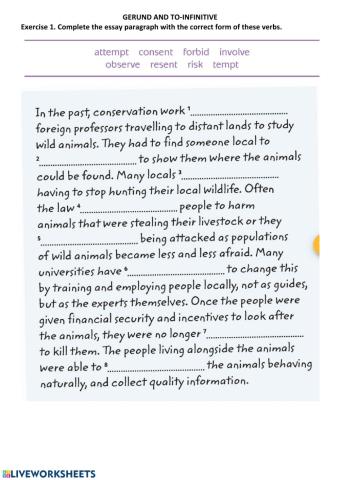 GERUND AND TO-INFINITIVE
Exercise 1. Complete the essay paragraph with the correct form of these verbs.
attempt consent forbid involve
observe resent risk tempt
In the past, conservation work ¹..............................
foreign professors travelling to distant lands to study
wild animals. They had to find someone local to
².............................. to show them where the animals
could be found. Many locals ³..............................
having to stop hunting their local wildlife. Often
the law ⁴.............................. people to harm
animals that were stealing their livestock or they
⁵.............................. being attacked as populations
of wild animals became less and less afraid. Many
universities have ⁶.............................. to change this
by training and employing people locally, not as guides,
but as the experts themselves. Once the people were
given financial security and incentives to look after
the animals, they were no longer ⁷..............................
to kill them. The people living alongside the animals
were able to ⁸.............................. the animals behaving
naturally, and collect quality information.
LIVEWORKSHEETS